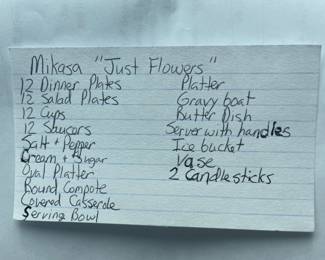 Mikasa "Just Flowers"
12 Dinner Plates
12 Salad Plates
12 Cups
12 Saucers
Salt + Pepper
Cream + Sugar
Oval Platter
Round Compote
Covered Casserole
Serving Bowl
Platter
Gravy boat
Butter Dish
Server with handles
Ice bucket
Vase
2 Candlesticks